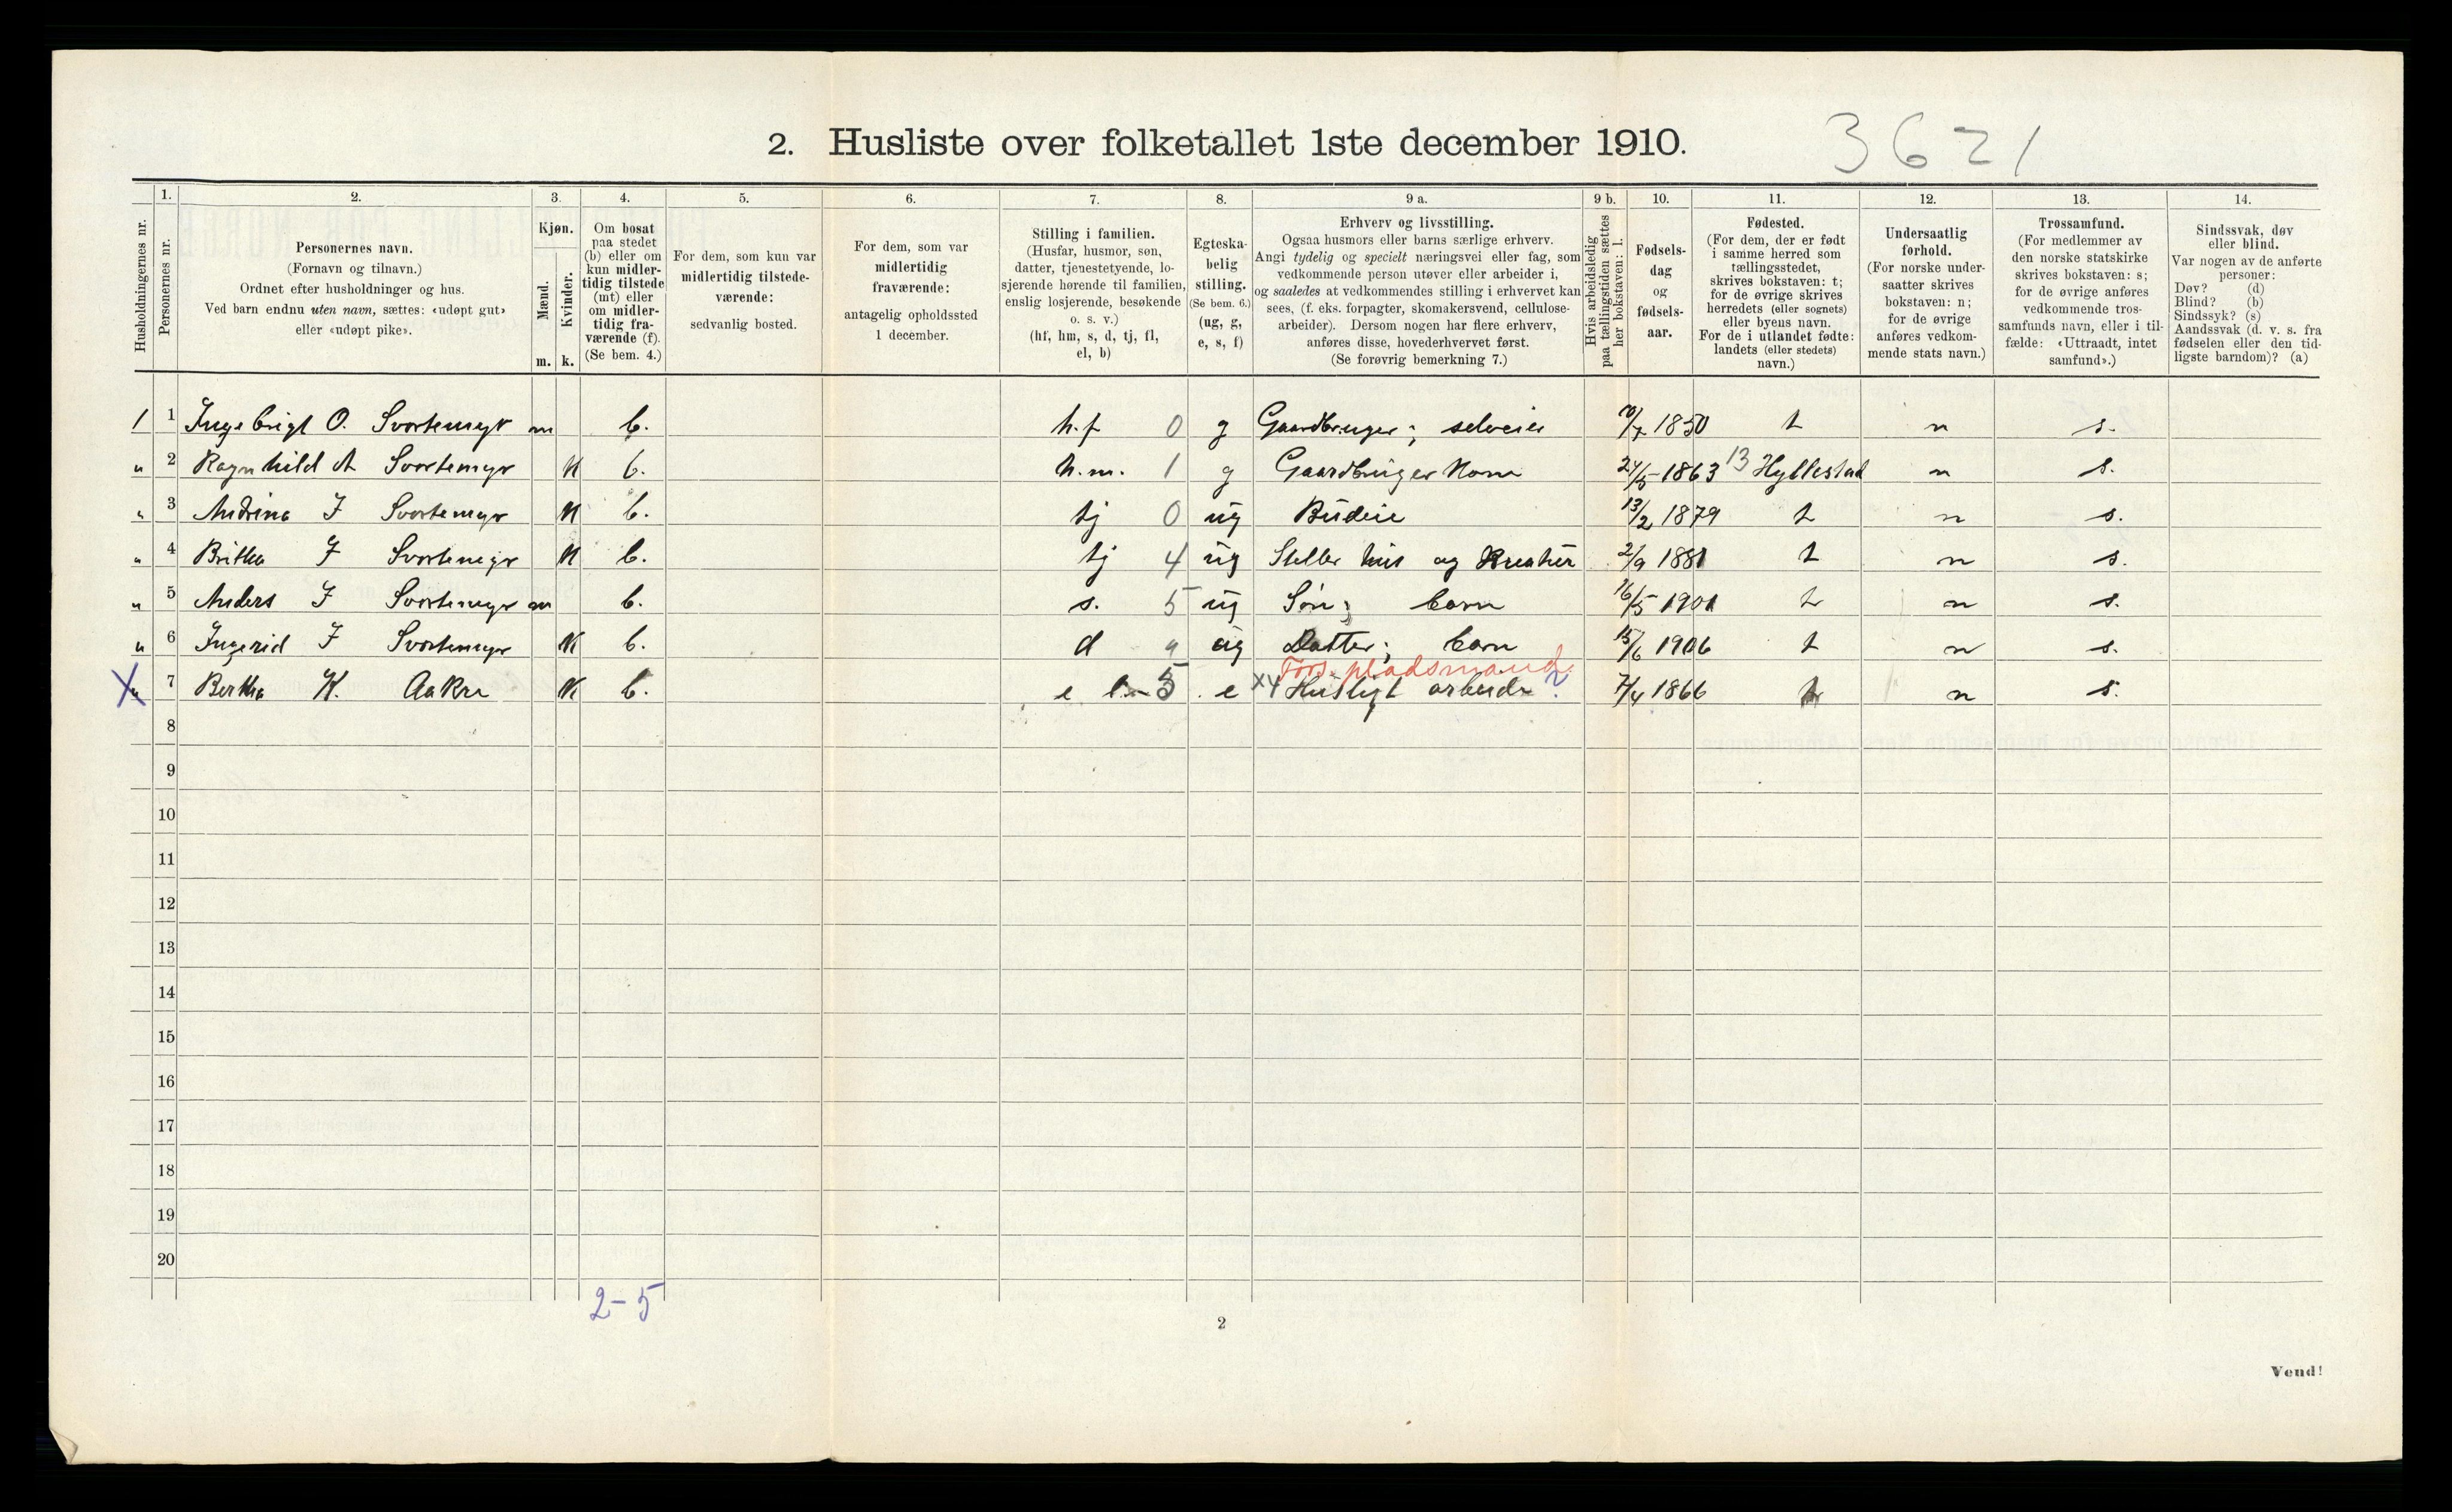 2. Husliste over folketallet 1ste december 1910.
3621
Husholdningernes nr.
1.
Personernes nr.
2.
Personernes navn.
(Fornavn og tilnavn.)
Ordnet efter husholdninger og hus.
Ved barn endnu uten navn, sættes: «udøpt gut»
eller «udøpt pike».
3.
Kjøn.
Mænd.
m.
Kvinder.
k.
4.
Om bosat
paa stedet
(b) eller om
kun midler-
tidig tilstede
(mt) eller
om midler-
tidig fra-
værende (f).
(Se bem. 4.)
5.
For dem, som kun var
midlertidig tilstede-
værende:
sedvanlig bosted.
6.
For dem, som var
midlertidig
fraværende:
antagelig opholdssted
1 december.
7.
Stilling i familien.
(Husfar, husmor, søn,
datter, tjenestetyende, lo-
sjerende hørende til familien,
enslig losjerende, besøkende
o. s. v.)
(hf, hm, s, d, tj, fl,
el, b)
8.
Egteska-
belig
stilling.
(Se bem. 6.)
(ug, g,
e, s, f)
9 a.
Erhverv og livsstilling.
Ogsaa husmors eller barns særlige erhverv.
Angi tydelig og specielt næringsvei eller fag, som
vedkommende person utøver eller arbeider i,
og saaledes at vedkommendes stilling i erhvervet kan
sees, (f. eks. forpagter, skomakersvend, cellulose-
arbeider). Dersom nogen har flere erhverv,
anføres disse, hovederhvervet først.
(Se forøvrig bemerkning 7.)
9 b.
Hvis arbeidsledig
paa tællingstiden sættes
her bokstaven: l.
10.
Fødsels-
dag
og
fødsels-
aar.
11.
Fødested.
(For dem, der er født
i samme herred som
tællingsstedet,
skrives bokstaven: t;
for de øvrige skrives
herredets (eller sognets)
eller byens navn.
For de i utlandet fødte:
landets (eller stedets)
navn.)
12.
Undersaatlig
forhold.
(For norske under-
saatter skrives
bokstaven: n;
for de øvrige
anføres vedkom-
mende stats navn.)
13.
Trossamfund.
(For medlemmer av
den norske statskirke
skrives bokstaven: s;
for de øvrige anføres
vedkommende tros-
samfunds navn, eller i til-
fælde: «Uttraadt, intet
samfund».)
14.
Sindssvak, døv
eller blind.
Var nogen av de anførte
personer:
Døv? (d)
Blind? (b)
Sindssyk? (s)
Aandssvak (d. v. s. fra
fødselen eller den tid-
ligste barndom)? (a)
1 1 Ingebrigt O. Svortemyr m b. h.f 0 g Gaardbruger; selveier 1850 t n s.
" 2 Ragnhild A Svortemyr K b. h.m. 1 g Gaardbruger Kone 24/5 1863 13 Hyllestad n s.
" 3 Andrina I Svortemyr K b. tj 0 ug Budeie 13/2 1879 t n s.
" 4 Britha I Svortemyr K b. tj 4 ug Steller hus og Kreatur 2/9 1881 t n s.
" 5 Anders I Svortemyr m b. s. 5 ug Søn; barn 16/5 1901 t n s.
" 6 Ingerid I Svortemyr K b. d 9 ug Datter; barn 15/6 1906 t n s.
Fors. pladsmand
X " 7 Bertha K. Aakre K b. e l - 5 e X4 Husligt arbeide 7/4 1866 t n s.
8
9
10
11
12
13
14
15
16
17
18
19
20
2-5
2
Vend!